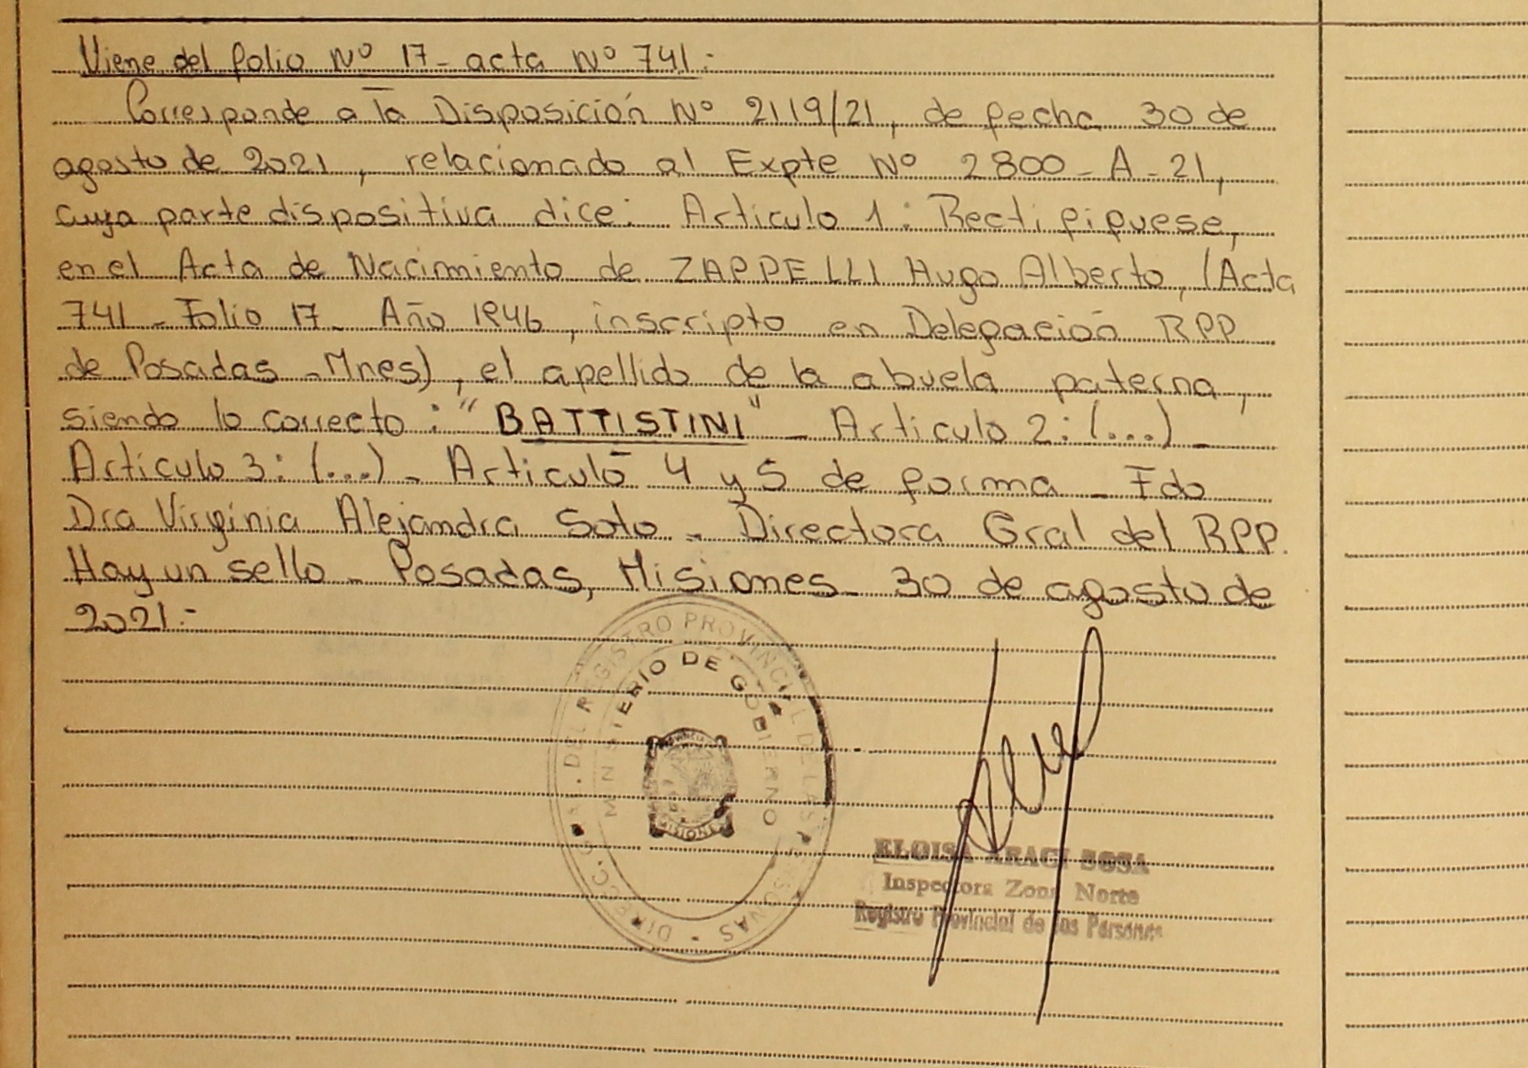 Viene del folio Nº 17 - acta Nº 741.-
Corresponde a la Disposición Nº 2119/21, de fecha 30 de
agosto de 2021, relacionado al Expte Nº 2800 - A - 21,
cuya parte dispositiva dice: Articulo 1: Rectifiquese,
en el Acta de Nacimiento de ZAPPELLI Hugo Alberto, (Acta
741 - Folio 17 - Año 1946, inscripto en Delegación RPP
de Posadas - Mnes), el apellido de la abuela paterna,
siendo lo correcto: "BATTISTINI" - Articulo 2: (...) -
Artículo 3: (...) - Articulo 4 y 5 de forma - Fdo
Dra Virginia Alejandra Soto - Directora Gral del RPP.
Hay un sello - Posadas, Misiones - 30 de agosto de
2021.-
DIRECC. GRAL. DEL REGISTRO PROVINCIAL DE LAS PERSONAS -
MINISTERIO DE GOBIERNO
PROVINCIA
MISIONES
ELOISA ARACI SOSA
Inspectora Zona Norte
Registro Provincial de las Personas